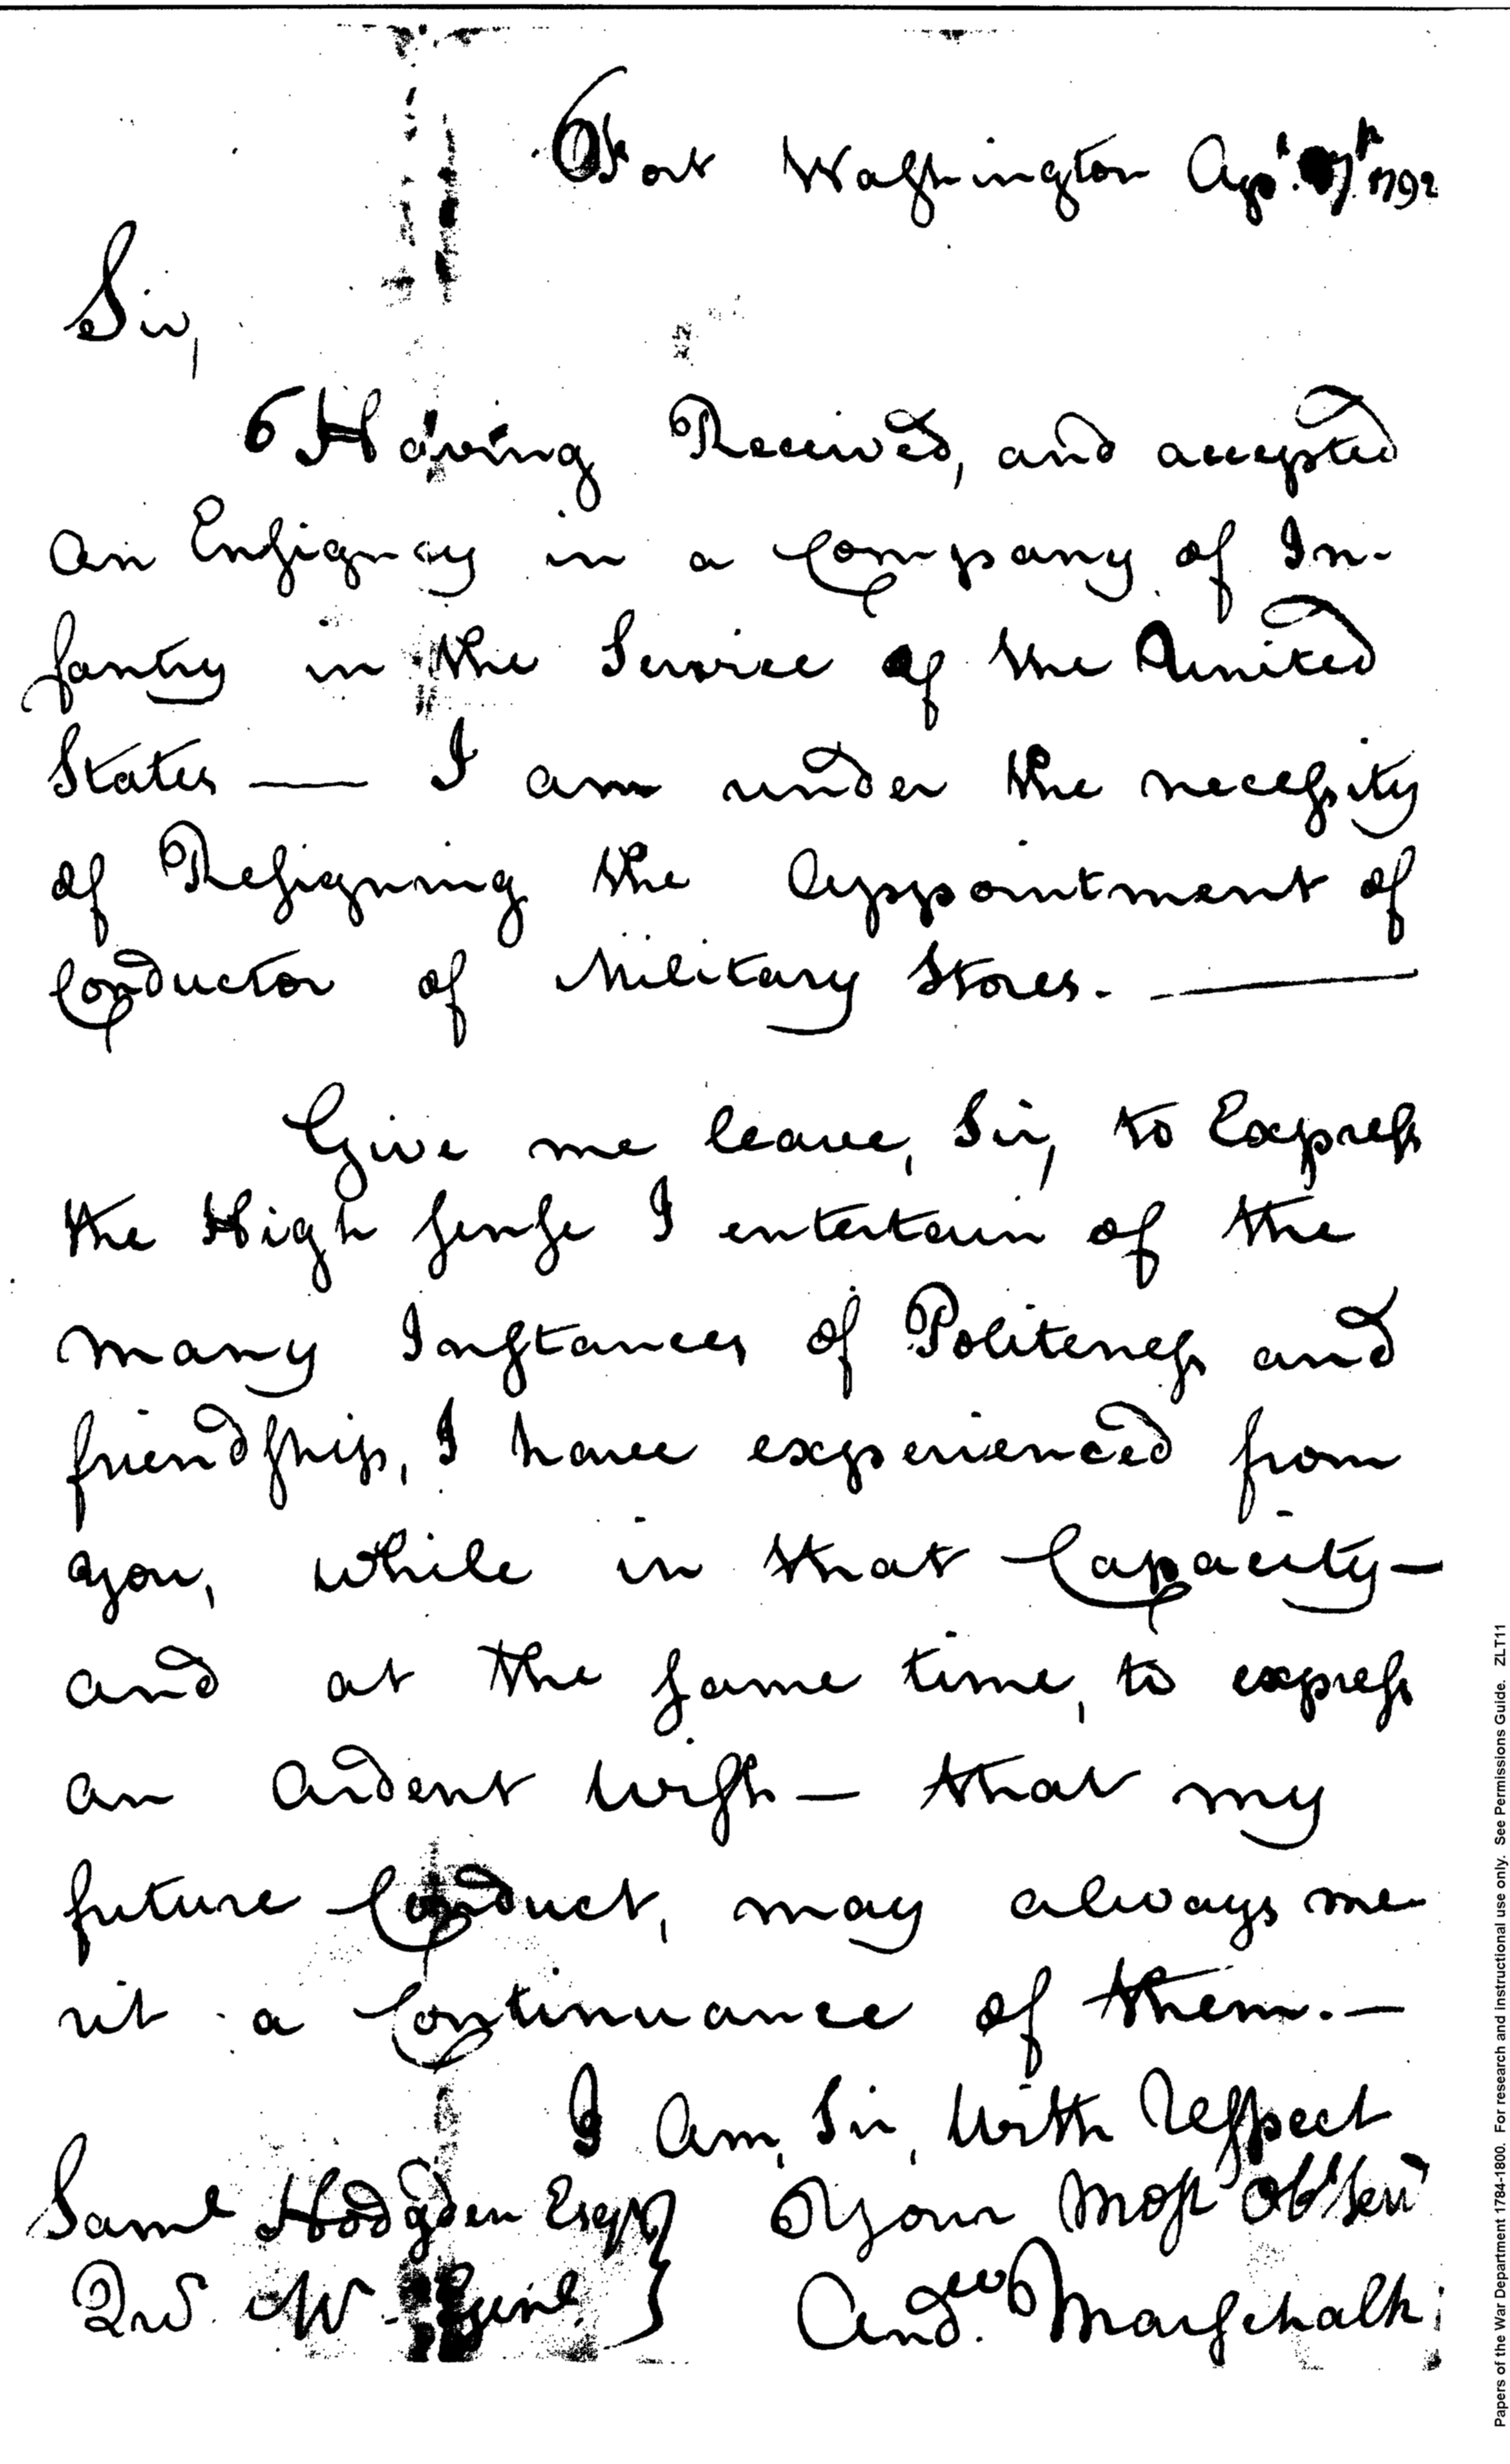 Fort Washington Apl. 7th 1792
Sir,
Having Received, and accepted
an Ensigncy in a Company of In-
fantry in the Service of the United
States — I am under the necessity
of Resigning the Appointment of
Conductor of Military Stores. —
Give me leave, Sir, to Express
the High sense I entertain of the
many Instances of Politeness and
friendship, I have experienced from
you, while in that Capacity —
and at the same time, to express
an Ardent Wish — that my
future Conduct, may always me
rit a Continuance of them. —
I Am, Sir, With Respect
Your Most Obt Servt
Andw Marschalk
Saml Hodgden Esqr
Qr Mr Genl
Papers of the War Department 1784-1800. For research and instructional use only. See Permissions Guide. ZLT11